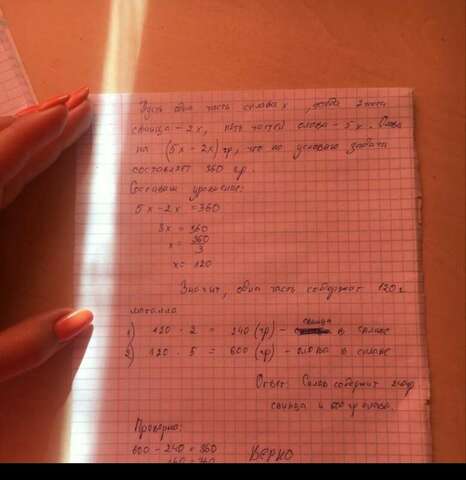 Пусть одна часть сплава x, тогда 2 части
свинца - 2x, пять частей олова - 5x. Олова
на (5x - 2x) гр, что по условию задачи
составляет 360 гр.
Составим уравнение:
5x - 2x = 360
3x = 360
x = 360/3
x = 120
Значит, одна часть содержат 120 г
металла
1) 120 · 2 = 240 (гр) - свинца в сплаве
2) 120 · 5 = 600 (гр) - олова в сплаве
Ответ: Сплав содержит 240 гр
свинца и 600 гр олова.
Проверка:
600 - 240 = 360
360 = 360 Верно